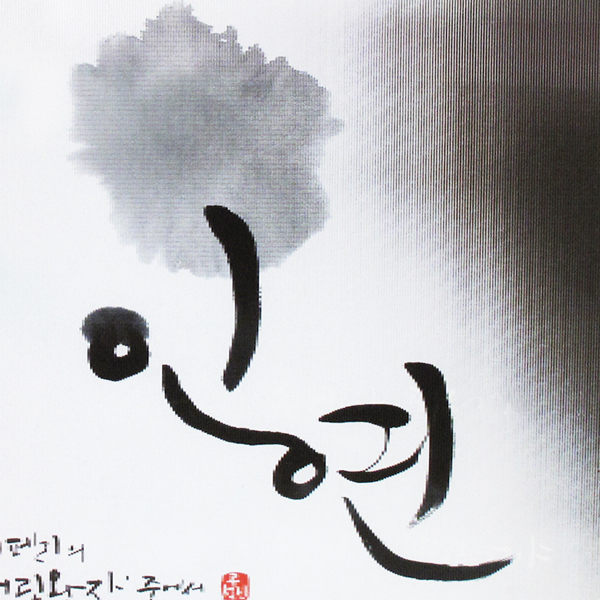 인연
페리의
어린왕자' 중에서